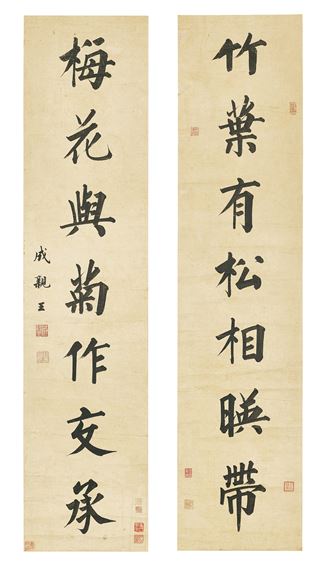 竹葉有松相暎帶
梅花與菊作友承
成親王